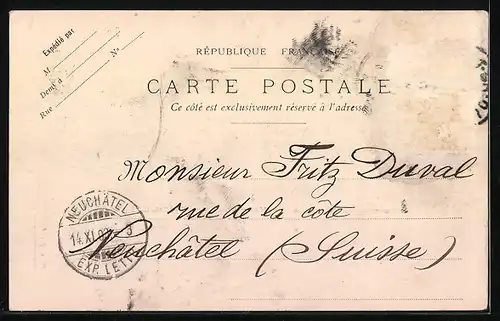 Expédié par
M
Demt à
Rue
No
RÉPUBLIQUE FRANÇAISE
CARTE POSTALE
Ce côté est exclusivement réservé à l'adresse
Monsieur Fritz Duval
rue de la côte
Neuchâtel (Suisse)
NEUCHÂTEL
14.XI.
EXP. LETT